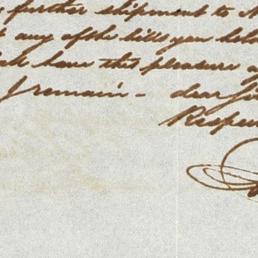 further shipment to
any of the bills you
have this pleasure
I remain - dear Sir
Respec